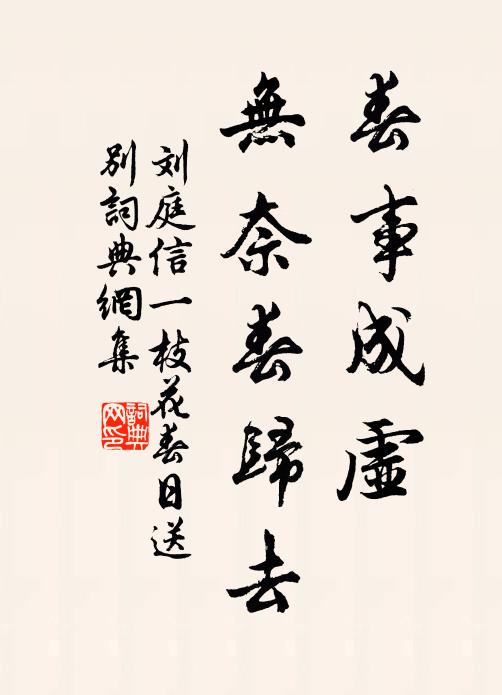 春事成虛
無奈春歸去
刘庭信一枝花春日送
別詞典網集
詞典網印